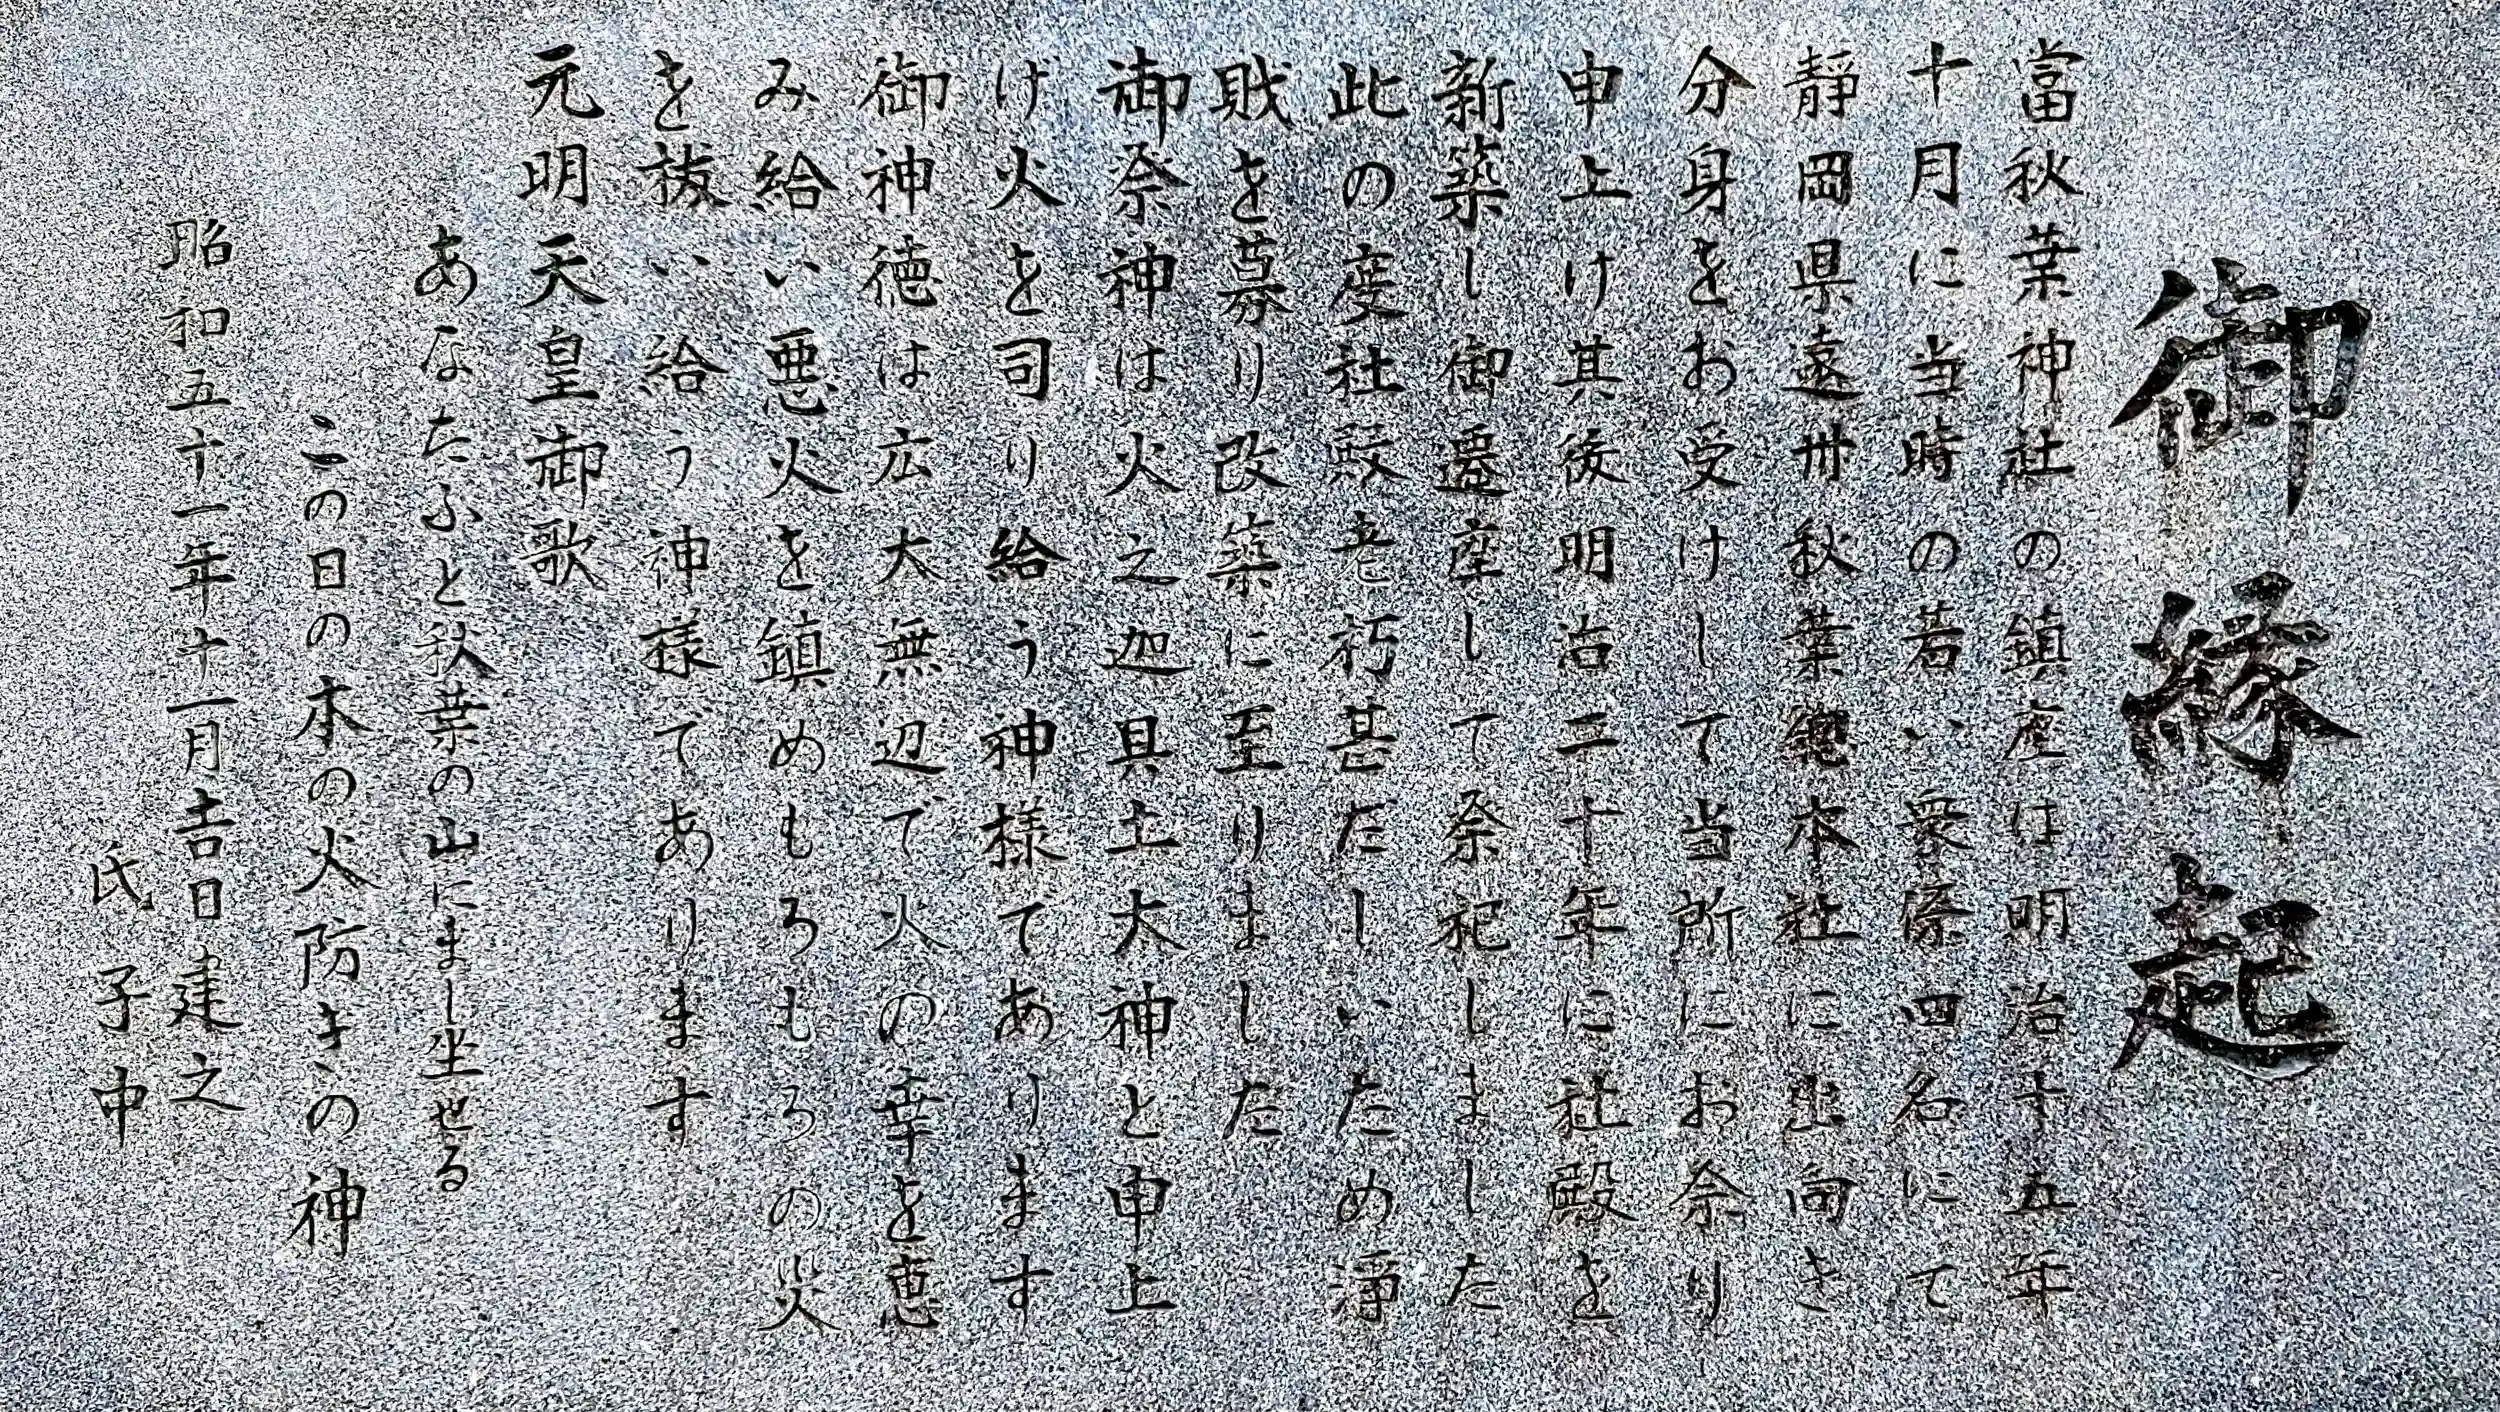 御縁起
當秋葉神社の鎮座は明治十五年
十月に当時の若い衆係四名にて
靜岡県遠州秋葉総本社に出向き
分身をお受けして当所にお祭り
申上け其後明治三十年に社殿を
新築し御遷座して祭祀しました
此の度社殿老朽甚だしいため淨
財を募り改築に至りました
御祭神は火之迦具土大神と申上
げ火を司り給う神様てあります
御神徳は広大無辺で火の幸を恵
み給い悪火を鎮めもろもろの災
を祓い給う神様であります
元明天皇御歌
あなたふと秋葉の山にまし坐せる
この日の本の火防きの神
昭和五十一年十一月吉日建之
氏子中